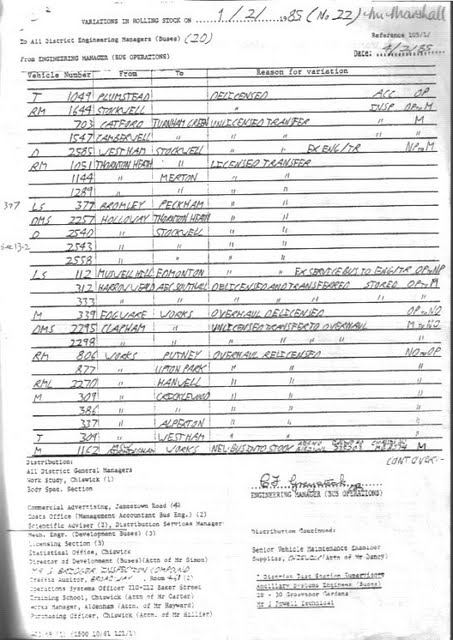 VARIATIONS IN ROLLING STOCK ON 1/2/ 1985 (No 22) Mr Marshall
To All District Engineering Managers (Buses) (20) Reference 105/1/
From ENGINEERING MANAGER (BUS OPERATIONS) Date: 4/2/85
Vehicle Number From To Reason for variation
T 1049 PLUMSTEAD DELICENSED ACC OP
RM 1644 STOCKWELL " INSP OP to M
703 CATFORD TURNHAM GREEN UNLICENSED TRANSFER " M
1547 CAMBERWELL " " " "
D 2585 WESTHAM STOCKWELL " " EX ENG/TR NP to M
RM 1051 THORNTON HEATH " LICENSED TRANSFER
1144 " MERTON " "
1289 " " " "
377 LS 377 BROMLEY PECKHAM " "
DMS 2257 HOLLOWAY THORNTON HEATH " "
D 2540 " STOCKWELL " "
2543 " " " "
2558 " " " "
LS 112 MUSWELL HILL EDMONTON " " EX SERVICE BUS TO ENG/TR OP to NP
312 HARROW WEALD AEC SOUTHALL DELICENSED AND TRANSFERRED STORED OP to M
333 " " " " " "
M 339 EDGWARE WORKS OVERHAUL DELICENSED OP to NO
DMS 2295 CLAPHAM " UNLICENSED TRANSFER TO OVERHAUL M to NO
2298 " " " " "
RM 806 WORKS PUTNEY OVERHAUL RELICENSED NO to OP
877 " UPTON PARK " " "
RML 2270 " HANWELL " " "
M 309 " CRICKLEWOOD " " "
386 " " " " "
337 " ALPERTON " " "
T 309 " WESTHAM " " "
M 1162 WORKS NEW BUS INTO STOCK M
CONT OVER
Distribution:
All District General Managers
Work Study, Chiswick (1)
Body Spec. Section
ENGINEERING MANAGER (BUS OPERATIONS)
Commercial Advertising, Jamestown Road (4)
Costs Office (Management Accountant Bus Eng.) (2)
Scientific Adviser (2), Distribution Services Manager
Mech. Engr. (Development Buses) (3)
Licensing Section (3)
Statistical Office, Chiswick
Director of Development (Buses)(Attn of Mr Simon)
Traffic Auditor, Room
Operations Systems Officer 210-212 Baker Street
Training School, Chiswick (Attn of Mr Carter)
Works Manager, Aldenham (Attn of Mr Hayward)
Purchasing Officer, Chiswick (Attn of Mr Hillier)
Distribution Continued:
Senior Vehicle Maintenance Examiner
Supplies, (Attn of Mr Dancy)
7 District Test Station Supervisors
Ancillary Systems Engineer (Buses)
28 - 30 Grosvenor Gardens
Mr J Powell Technical